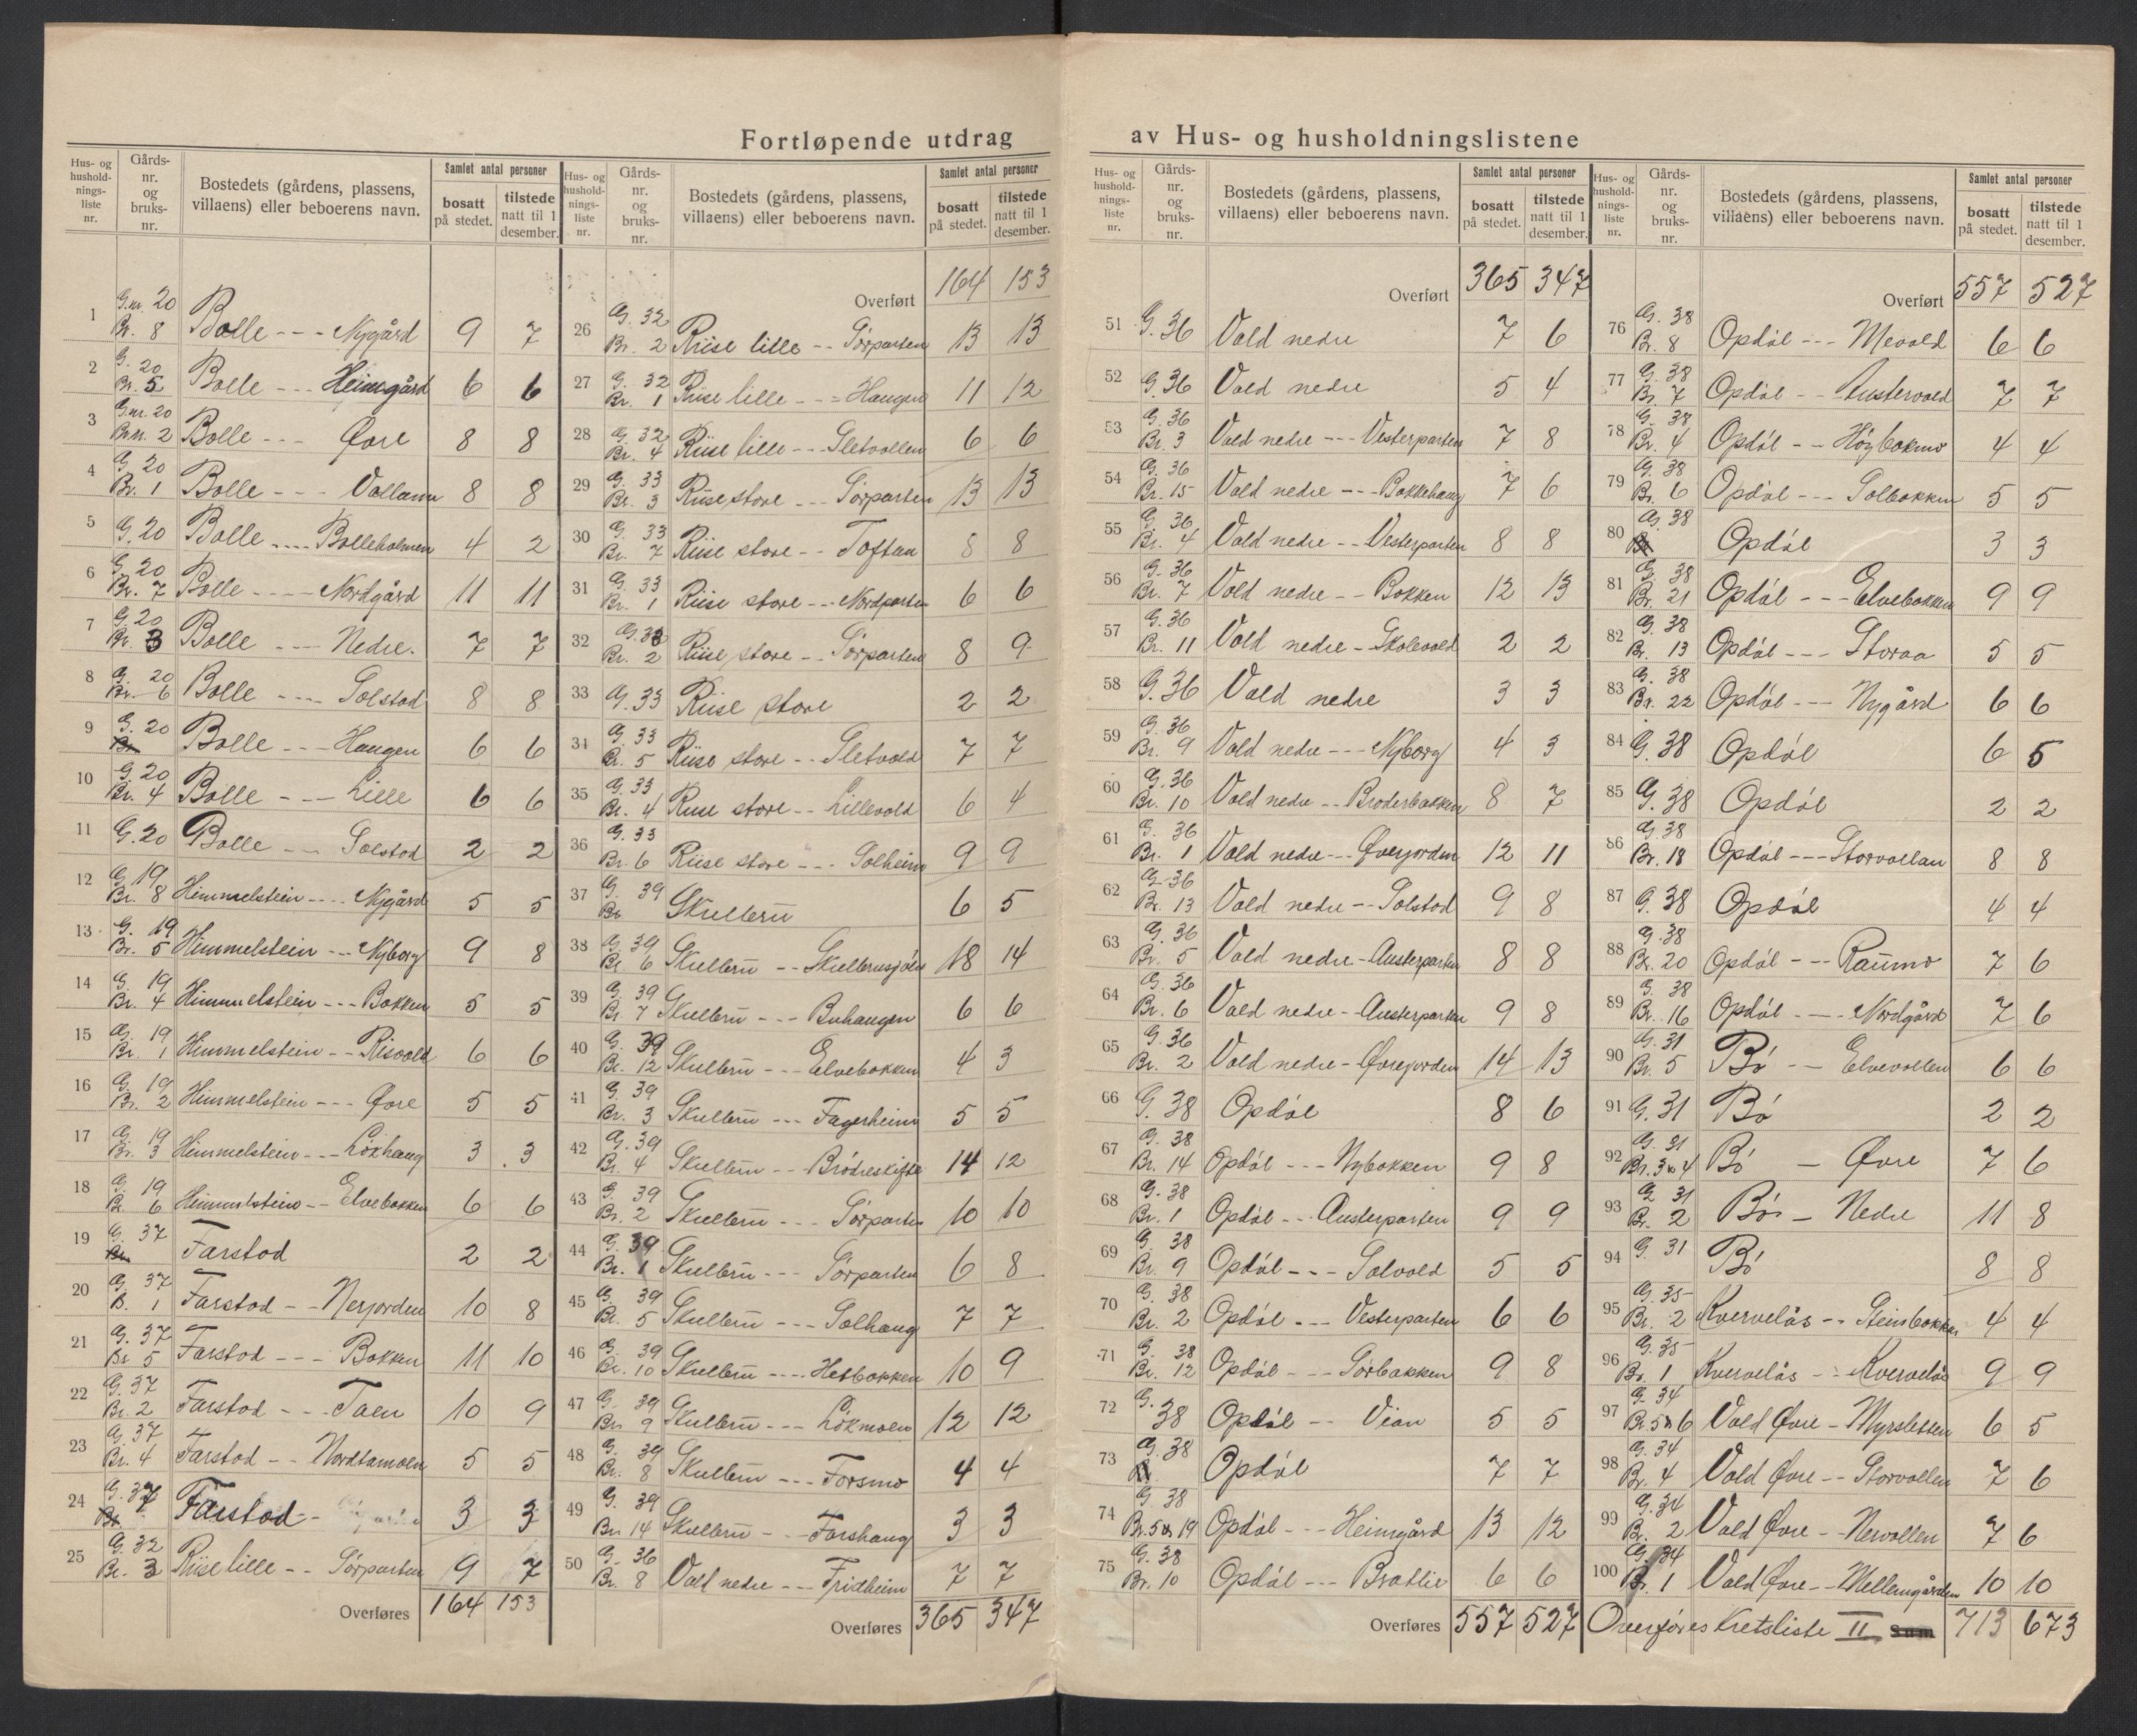 Fortløpende utdrag av Hus- og husholdningslistene
Hus- og husholdnings-liste nr. | Gårds-nr. og bruks-nr. | Bostedets (gårdens, plassens, villaens) eller beboerens navn. | Samlet antal personer | bosatt på stedet. | tilstede natt til 1 desember.
1 G.nr. 20 Br. 8 Bolle --- Nygård 9 7
2 G. 20 Br. 5 Bolle --- Heimgård 6 6
3 G.nr. 20 Br.n. 2 Bolle --- Øvre 8 8
4 G. 20 Br. 1 Bolle --- Vollann 8 8
5 G. 20 Bolle ---- Bolleholmen 4 2
6 G. 20 Br. 7 Bolle ---- Nordgård 11 11
7 G. 20 Br. 3 Bolle --- Nedre. 7 7
8 G. 20 Br. 6 Bolle ---- Solstad 8 8
9 G. 20 Br Bolle --- Haugen 6 6
10 G. 20 Br. 4 Bolle --- Lille 6 6
11 G. 20 Bolle --- Solstad 2 2
12 G. 19 Br. 8 Himmelstein ---- Nygård 5 5
13 G. 19 Br. 5 Himmelstein --- Nyborg 9 8
14 G. 19 Br. 4 Himmelstein --- Bakken 5 5
15 G. 19 Br. 1 Himmelstein -- Risvold 6 6
16 G. 19 Br. 2 Himmelstein --- Øvre 5 5
17 G. 19 Br. 3 Himmelstein --- Löxhaug 3 3
18 G. 19 Br. 6 Himmelstein -- Elvebakken 6 6
19 G. 37 Br Farstad 2 2
20 G. 37 B. 1 Farstad -- Nerjorden 10 8
21 G. 37 Br 5 Farstad --- Bakken 11 10
22 G. 37 Br. 2 Farstad --- Taen 10 9
23 G. 37 Br. 4 Farstad -- Nordtamoen 5 5
24 G. 37 Br Farstad - 3 3
25 G. 32 Br. 3 Riise lille -- Sørparten 9 7
Overføres 164 153
Hus- og husholdnings-liste nr. | Gårds-nr. og bruks-nr. | Bostedets (gårdens, plassens, villaens) eller beboerens navn. | Samlet antal personer | bosatt på stedet. | tilstede natt til 1 desember.
Overført 164 153
26 G. 32 Br. 2 Riise lille -- Sørparten 13 13
27 G. 32 Br. 1 Riise lille --- Haugen 11 12
28 G. 32 Br. 4 Riise lille --- Sletvollen 6 6
29 G. 33 Br. 3 Riise store --- Sørparten 13 13
30 G. 33 Br. 7 Riise store -- Toftan 8 8
31 G. 33 Br. 1 Riise store --- Nordparten 6 6
32 G. 33 Br. 2 Riise store -- Sørparten 8 9
33 G. 33 Riise store 2 2
34 G. 33 Br. 5 Riise store -- Sletvold 7 7
35 G. 33 Br. 4 Riise store -- Lillevold 6 4
36 G. 33 Br. 6 Riise store --- Solheim 9 9
37 G. 39 Br Skulbrū 6 5
38 G. 39 Br 6 Skulbrū -- Skulbrusjölen 18 14
39 G. 39 Br 7 Skulbrū --- Buhaugen 6 6
40 G. 39 Br. 12 Skulbrū --- Elvebakken 4 3
41 G. 39 Br. 3 Skulbrū --- Fagerheim 5 5
42 G. 39 Br. 4 Skulbrū -- Brödreskifte 14 12
43 G. 39 Br. 2 Skulbrū --- Sørparten 10 10
44 G. 39 Br. 1 Skulbrū --- Sørparten 6 8
45 G. 39 Br. 5 Skulbrū --- Solhaug 7 7
46 G. 39 Br. 10 Skulbrū ---- Hesbakken 10 9
47 G. 39 Br. 9 Skulbrū --- Lökmoen 12 12
48 G. 39 Br. 8 Skulbrū --- Forsmo 4 4
49 G. 39 Br. 14 Skulbrū - -- Forshaug 3 3
50 G. 36 Br. 8 Vold nedre --- Fridheim 7 7
Overføres 365 347
Hus- og husholdnings-liste nr. | Gårds-nr. og bruks-nr. | Bostedets (gårdens, plassens, villaens) eller beboerens navn. | Samlet antal personer | bosatt på stedet. | tilstede natt til 1 desember.
Overført 365 347
51 G. 36 Vold nedre 7 6
52 G. 36 Vold nedre 5 4
53 G. 36 Br. 3 Vold nedre --- Vesterparten 7 8
54 G. 36 Br. 15 Vold nedre --- Bakkehaug 7 6
55 G. 36 Br. 4 Vold nedre -- Vesterparten 8 8
56 G. 36 Br. 7 Vold nedre -- Bakken 12 13
57 G. 36 Br. 11 Vold nedre - Skolevold 2 2
58 G. 36 Vold nedre 3 3
59 G. 36 Br. 9 Vold nedre --- Nyborg 4 3
60 G. 36 Br. 10 Vold nedre -- Broderbakken 8 7
61 G. 36 Br. 1 Vold nedre -- Øverjorden 12 11
62 G. 36 Br. 13 Vold nedre -- Solstad 9 8
63 G. 36 Br. 5 Vold nedre - Austerparten 8 8
64 G. 36 Br. 6 Vold nedre - Austerparten 9 8
65 G. 36 Br. 2 Vold nedre - Øverjorden 14 13
66 G. 38 Opdöl 8 6
67 G. 38 Br. 14 Opdöl --- Nybakken 9 8
68 G. 38 Br. 1 Opdöl --- Austerparten 9 9
69 G. 38 Br. 9 Opdöl --- Solvold 5 5
70 G. 38 Br. 2 Opdöl --- Vesterparten 6 6
71 G. 38 Br. 12 Opdöl --- Sörbakken 9 8
72 G. 38 Opdöl -- Vian 5 5
73 G. 38 Br. Opdöl 7 7
74 G. 38 Br. 5 & 19 Opdöl --- Heimgård 13 12
75 G. 38 Br. 10 Opdöl --- Bratlie 6 6
Overføres 557 527
Hus- og husholdnings-liste nr. | Gårds-nr. og bruks-nr. | Bostedets (gårdens, plassens, villaens) eller beboerens navn. | Samlet antal personer | bosatt på stedet. | tilstede natt til 1 desember.
Overført 557 527
76 G. 38 Br. 8 Opdöl --- Mevold 6 6
77 G. 38 Br. 7 Opdöl -- Austervold 7 7
78 G. 38 Br. 4 Opdöl -- Högbakmo 4 4
79 G. 38 Br. 6 Opdöl --- Solbakken 5 5
80 G. 38 Opdöl 3 3
81 G. 38 Br. 21 Opdöl --- Elvebakken 9 9
82 G. 38 Br. 13 Opdöl --- Storaa 5 5
83 G. 38 Br. 22 Opdöl --- Nygård 6 6
84 G. 38 Opdöl 6 5
85 G. 38 Opdöl 2 2
86 G. 38 Br. 18 Opdöl --- Storvollan 8 8
87 G. 38 Opdöl 4 4
88 G. 38 Br. 20 Opdöl --- Raūmo 7 6
89 G. 38 Br. 16 Opdöl --- Nordgård 7 6
90 G. 31 Br. 5 Bö -- Elvevollen 6 6
91 G. 31 Bö 2 2
92 G. 31 Br. 3 & 4 Bö - Øvre 7 6
93 G. 31 Br. 2 Bö - Nedre 11 8
94 G. 31 Bö 8 8
95 G. 35 Br. 2 Kvervelås -- Steinsbakken 4 4
96 G. 35 Br. 1 Kvervelås -- Kvervelås 9 9
97 G. 34 Br. 5 & 6 Vold Øvre - Myrsletten 6 5
98 G. 34 Br. 4 Vold Øvre -- Storvollen 7 6
99 G. 34 Br. 2 Vold Øvre -- Nervollen 7 6
100 G. 34 Br. 1 Vold Øvre -- Mellemgården 10 10
Overføres Kretsliste II Sum 713 673